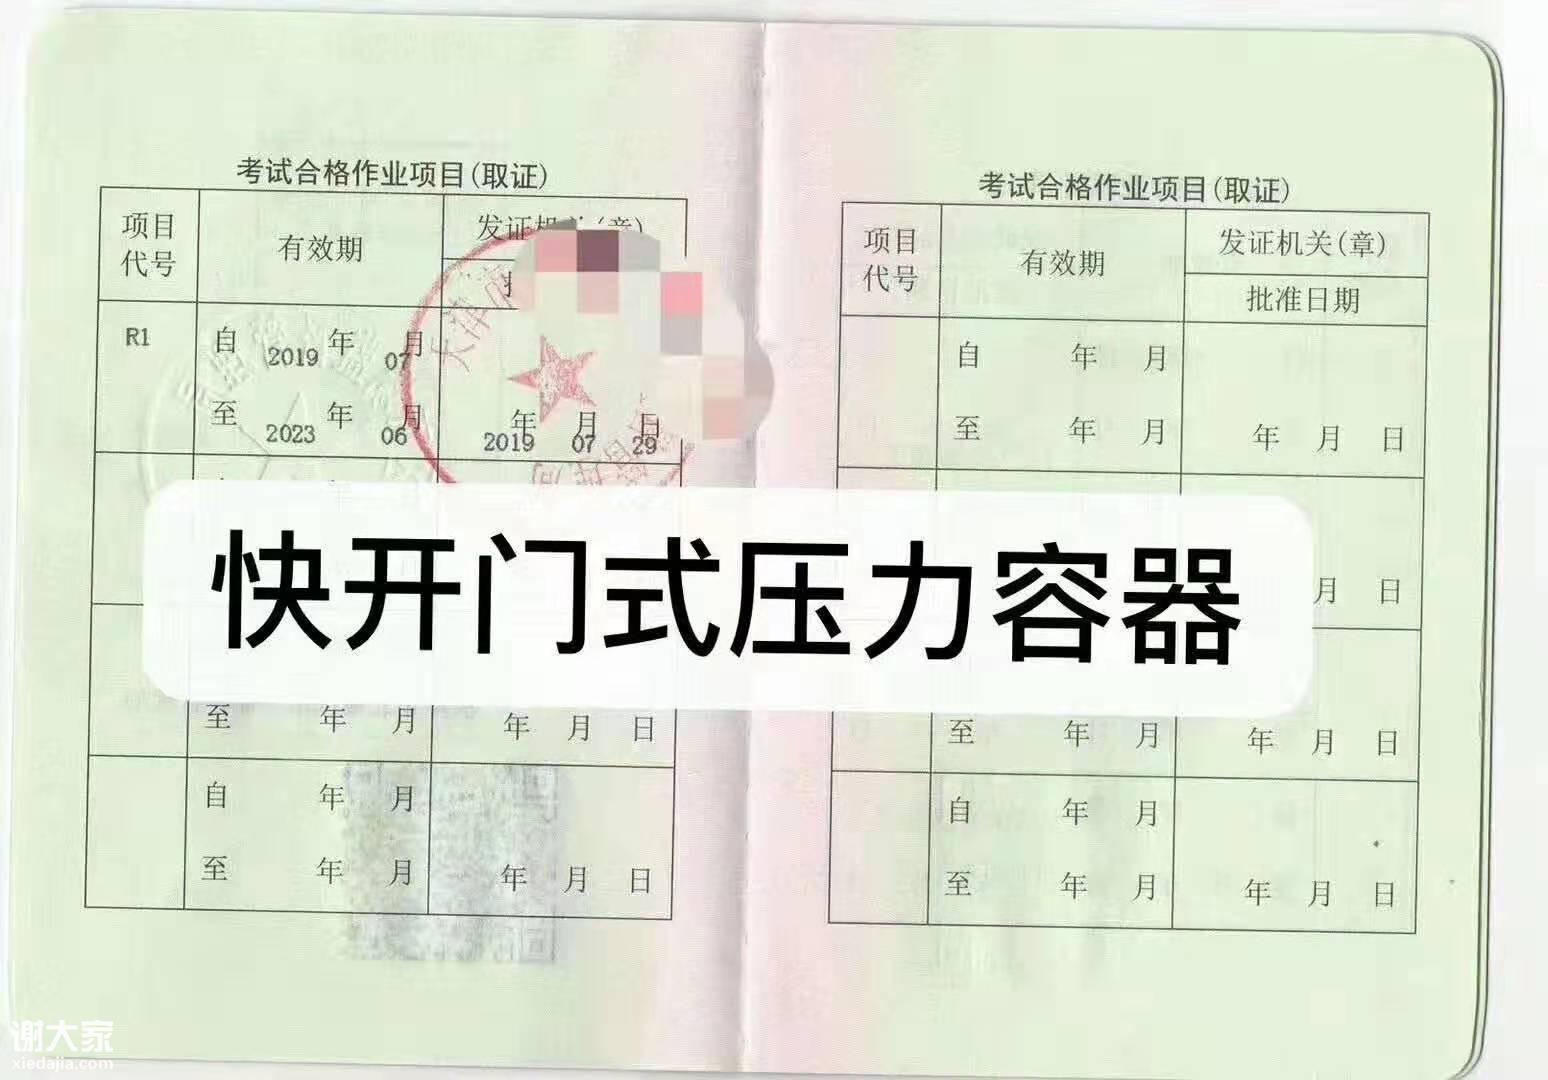 考试合格作业项目(取证)
项目
代号
有效期
发证机关(章)
R1
自 2019 年 07 月
至 2023 年 06 月
2019 年 07 月 29 日
天津市
至 年 月
年 月 日
自 年 月
至 年 月
年 月 日
考试合格作业项目(取证)
项目
代号
有效期
发证机关(章)
批准日期
自 年 月
至 年 月
年 月 日
月 日
至 年 月
年 月 日
自 年 月
至 年 月
年 月 日
快开门式压力容器
谢大家
xiedajia.com